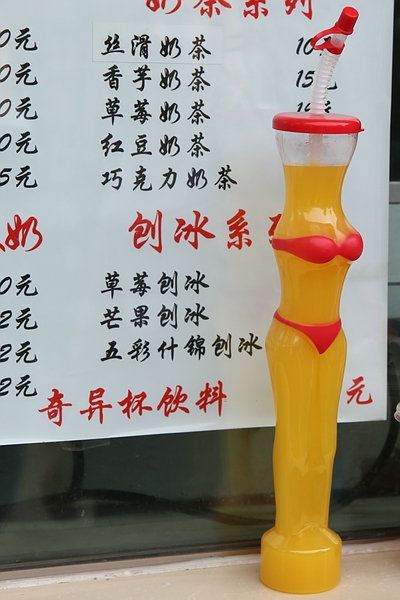 奶茶系列
0元 丝滑奶茶 10
0元 香芋奶茶 15元
0元 草莓奶茶
0元 红豆奶茶
5元 巧克力奶茶
奶 刨冰系
0元 草莓刨冰
2元 芒果刨冰
2元 五彩什锦刨冰
2元
奇异杯饮料 元